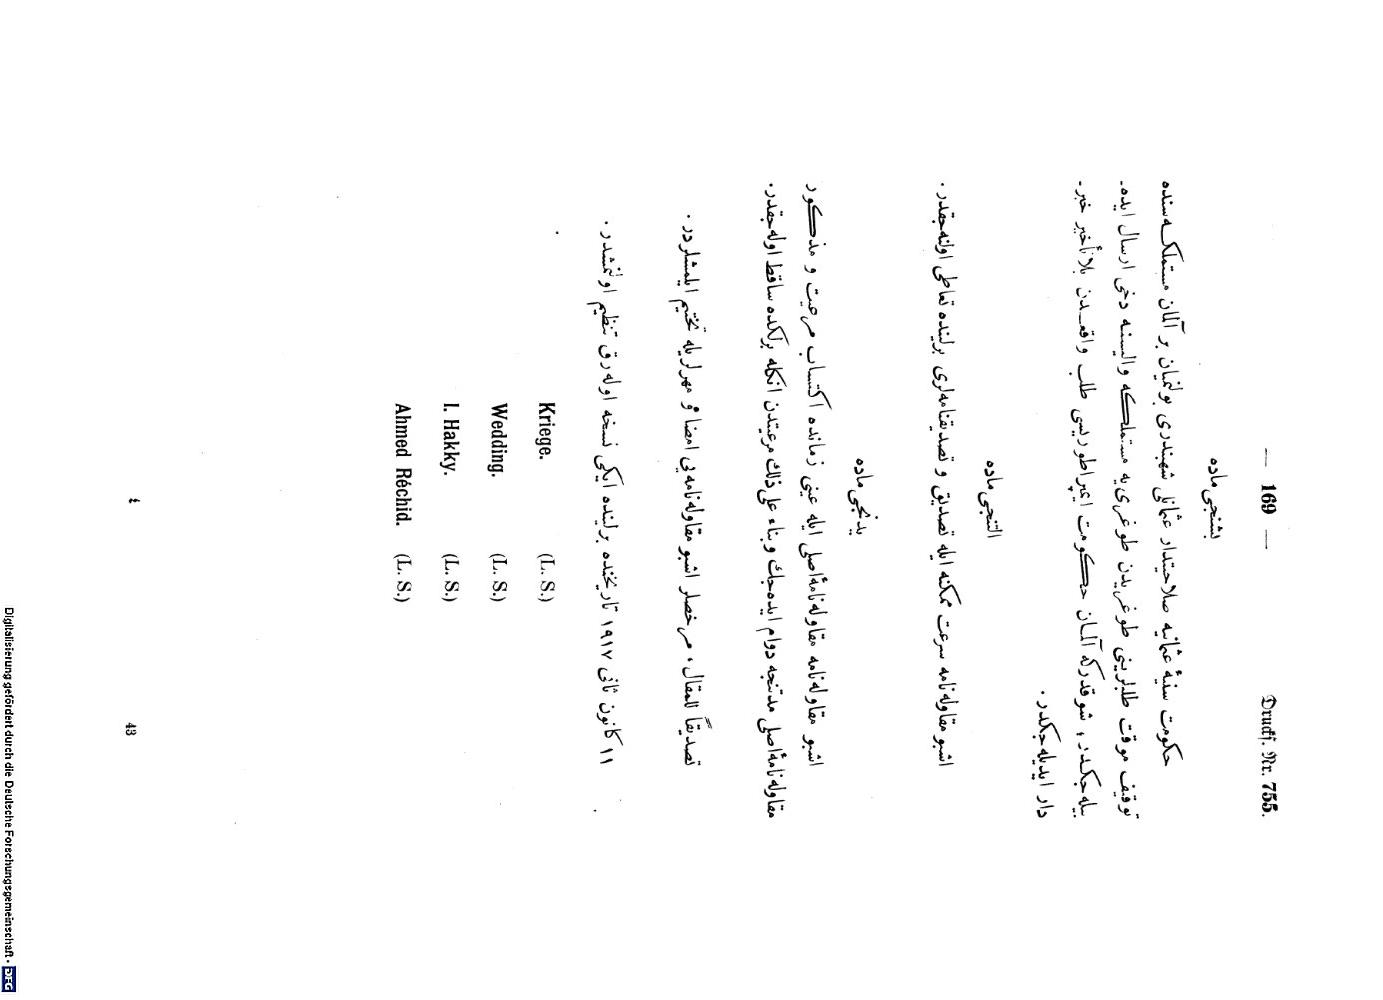 — 169 —
Drucks. Nr. 755.
بشنجی ماده
حكومت سنیهٔ عثمانیه صلاحیتدار عثمانلی شهبندری بولنمیان بر آلمان مستملكه‌سنده
توقیف موقت طلبلرینی طوغریدن طوغری‌یه مستملكه والیسنه دخی ارسال ایده‌-
بیله‌جكدر، شوقدركه آلمان حكومت ایمپراطوریسی طلب واقعدن بلا تأخیر خبر-
دار ایدیله‌جكدر.
التنجی ماده
اشبو مقاوله‌نامه سرعت ممكنه ایله تصدیق و تصدیقنامه‌لری برلینده تعاطی اولنه‌جقدر.
یدنجی ماده
اشبو مقاوله‌نامه مقاوله‌نامهٔ اصلی ایله عینی زمانده اكتساب مرعیت و مذكور
مقاوله‌نامهٔ اصلی مدتنجه دوام ایده‌جك وبناء علی ذلك مرعیتدن انكله برلكده ساقط اوله‌جقدر.
تصدیقاً للمقال، مرخصلر اشبو مقاوله‌نامه‌یی امضا و مهرلریله تختیم ایلمشلردر.
١١ كانون ثانی ١٩١٧ تاریخنده برلینده ایكی نسخه اوله‌رق تنظیم اولنمشدر.
Kriege. (L. S.)
Wedding. (L. S.)
I. Hakky. (L. S.)
Ahmed Réchid. (L. S.)
٤ 43
Digitalisierung gefördert durch die Deutsche Forschungsgemeinschaft - DFG